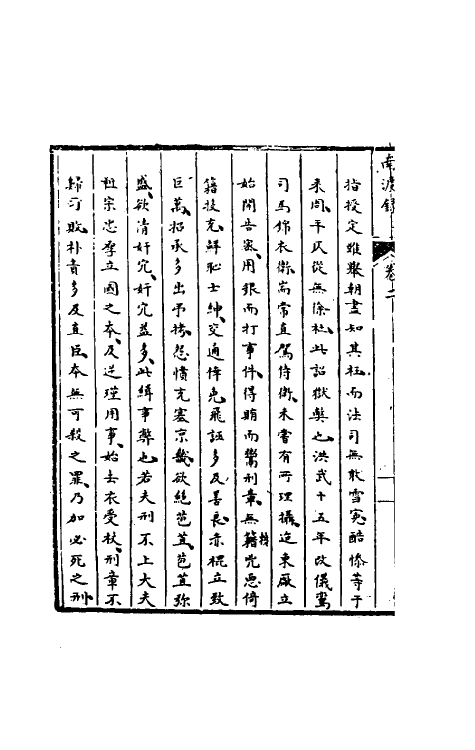 南渡錄
卷二
指授定雖舉朝盡知其枉而法司無敢雪冤酷慘等于
來周平反從無徐杜此詔獄獘也洪武十五年改儀鸞
司為錦衣衛耑常直駕侍衛未嘗有所理攝迄東廠立
始開告密用銀而打事件得賄而鬻刑章無籍兇惡倚
籍投充鮮恥士紳交通倖免飛誣多及善良赤棍立致
巨萬招承多出弔拷怨憤充塞京畿欲絕苞苴苞苴弥
盛欲清奸宄奸宄益多此緝事弊也若夫刑不上大夫
祖宗忠孝立國之本及逆瑾用事始去衣受杖刑章不
歸司敗朴責多及直臣本無可殺之罪乃加必死之刑